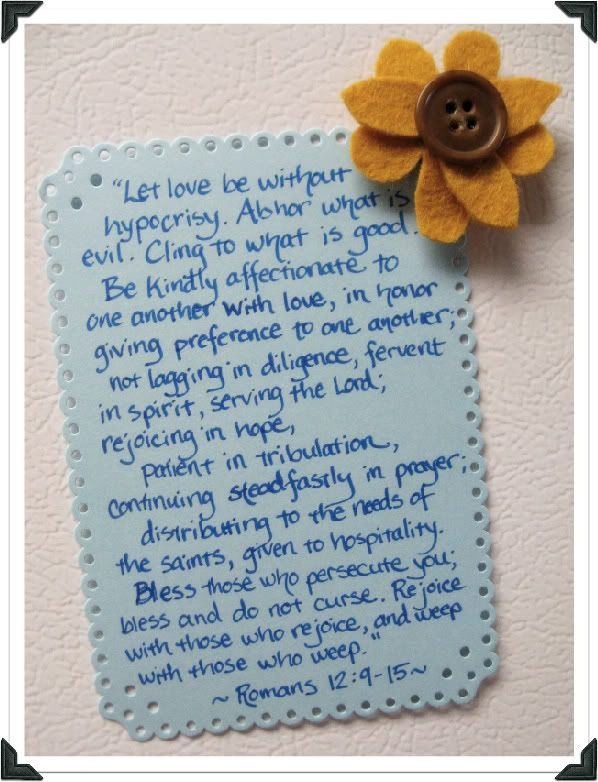 "Let love be without
hypocrisy. Abhor what is
evil. Cling to what is good.
Be kindly affectionate to
one another with love, in honor
giving preference to one another;
not lagging in diligence, fervent
in spirit, serving the Lord;
rejoicing in hope,
patient in tribulation,
continuing steadfastly in prayer;
distributing to the needs of
the saints, given to hospitality.
Bless those who persecute you;
bless and do not curse. Rejoice
with those who rejoice, and weep
with those who weep."
~Romans 12:9-15~